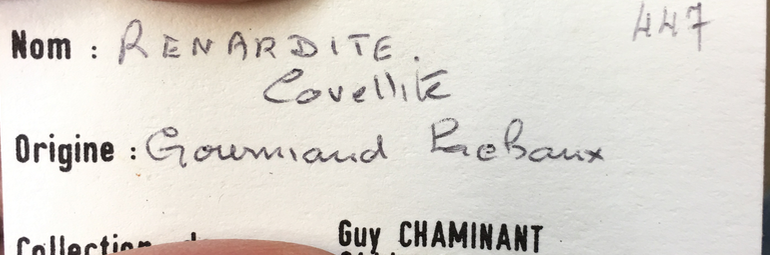 447
Nom : RENARDITE.
Covellite
Origine : Gourniaud
Collection
Guy CHAMINANT